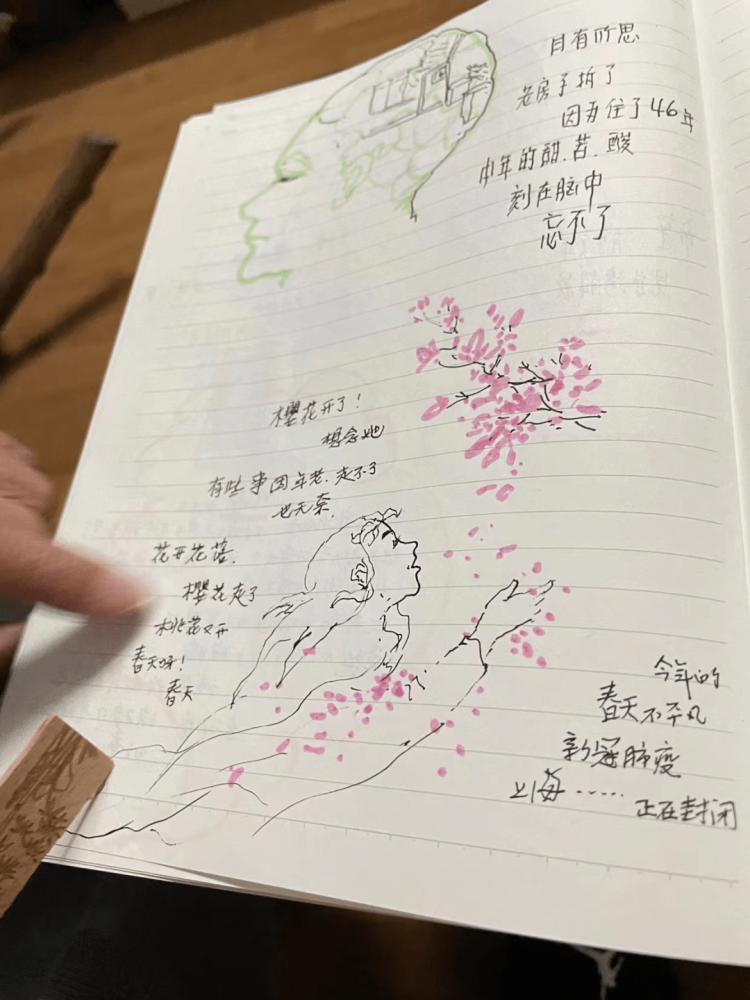 日有所思
老房子拆了
因为住了46年
中年的甜.苦.酸
刻在脑中
忘不了
樱花开了!
想念她
有些事因年老.走不了
也无奈.
花开花落.
樱花走了
桃花又开
春天呀!
春天
今年的
春天不平凡
新冠肺疫
上海……
正在封闭